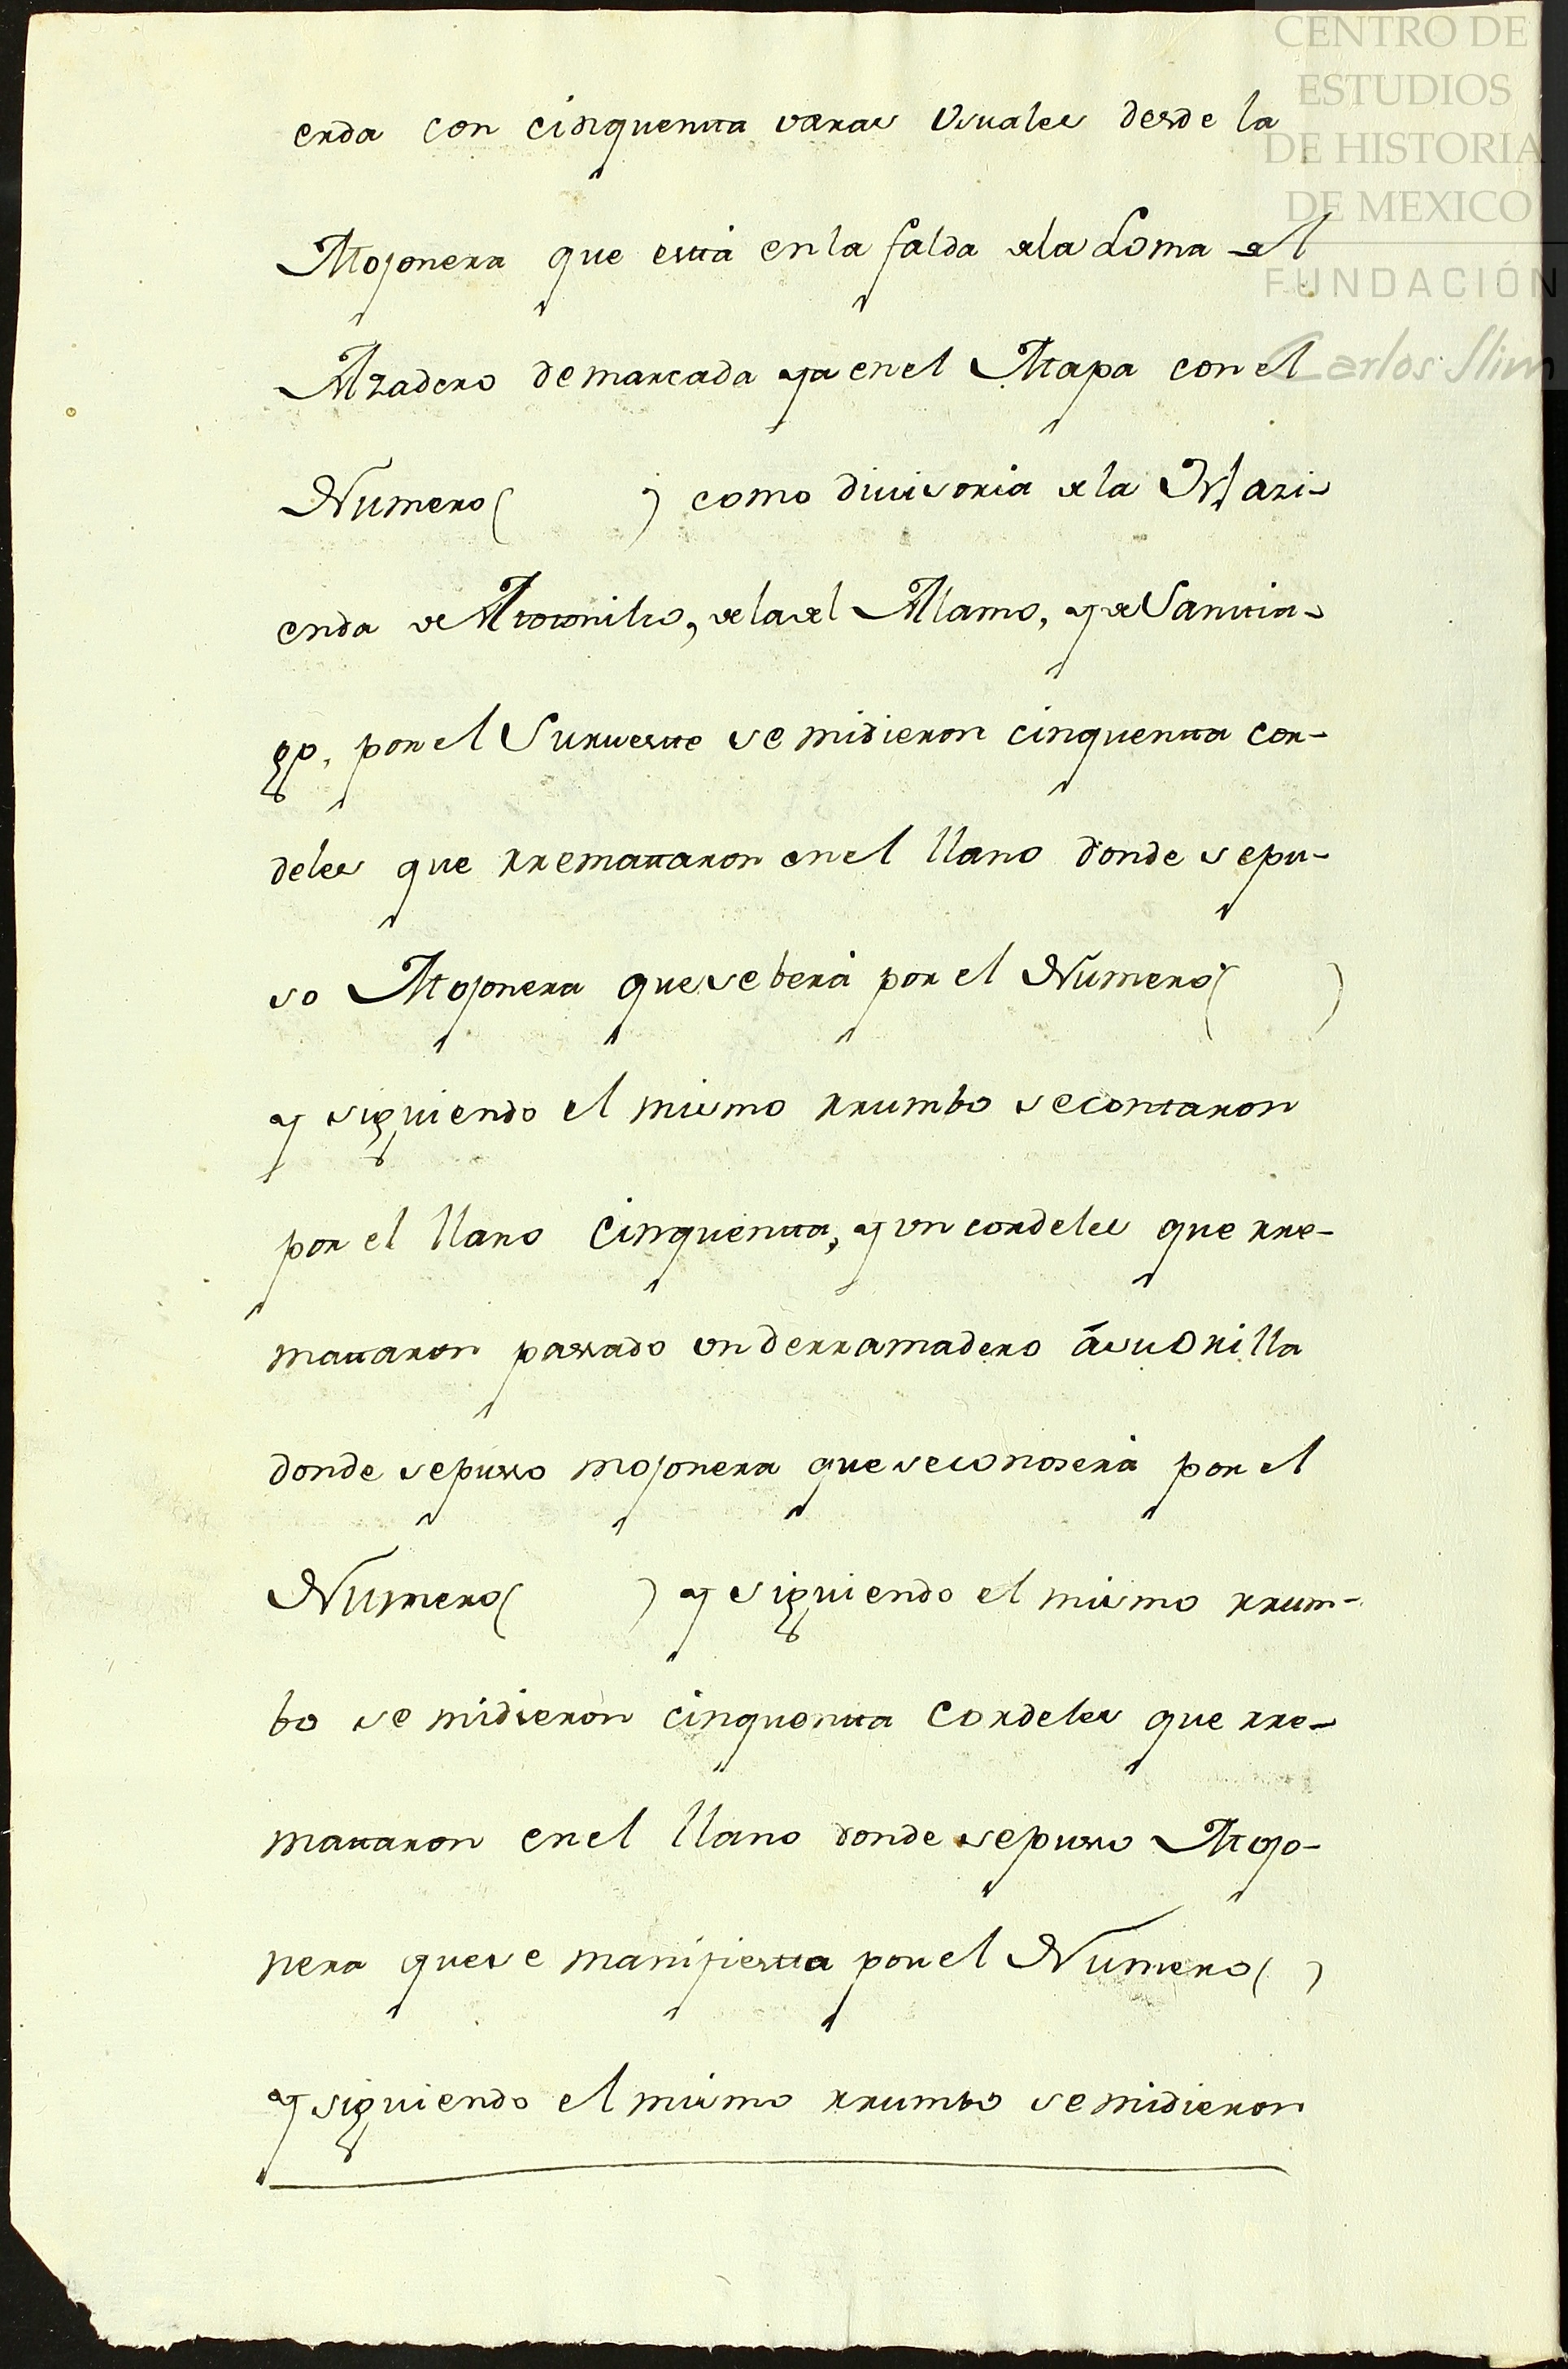 CENTRO DE
ESTUDIOS
DE HISTORIA
DE MEXICO
FUNDACIÓN
Carlos Slim
erda con cinquenta varas Vsuales desde la
Mojonera que està en la falda de la Loma del
Azadero demarcada ya en el Mapa con el
Numero ( ) como divisoria de la Hazi-
enda de Atotonilco, de la del Alamo, y de Santia-
go, por el Surueste se midieron cinquenta cor-
deles que rremataron en el llano donde se pu-
so Mojonera que se berà por el Numero ( )
y siguiendo el mismo rrumbo se contaron
por el llano cinquenta, y vn cordeles que rre-
mataron passado vn derramadero à su Orilla
donde se pusso mojonera que se conoserà por el
Numero ( ) y siguiendo el mismo rrum-
bo se midieron cinquenta Cordeles que rre-
mataron en el llano donde se pusso Mojo-
nera que se manifiesta por el Numero ( )
y siguiendo el mismo rrumbo se midieron